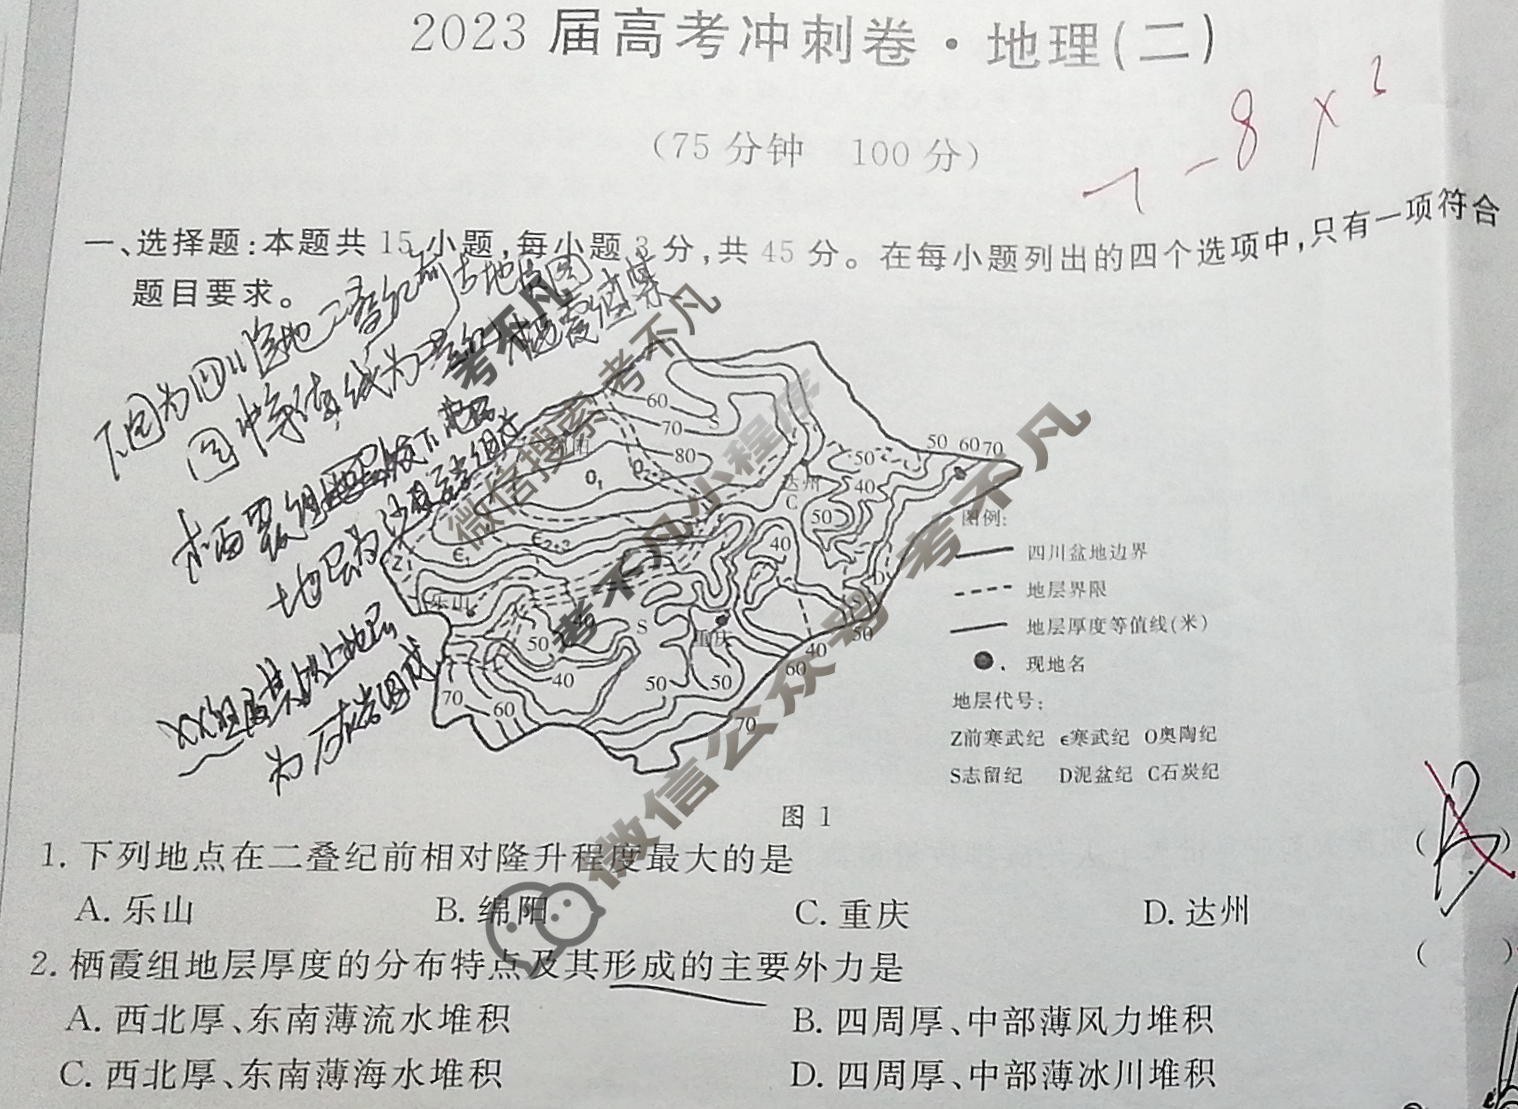 2023届高考冲刺卷·地理(二)
(75分钟 100分)
-8×3
一、选择题:本题共15小题,每小题3分,共45分。在每小题列出的四个选项中,只有一项符合
题目要求。
下图为四川盆地二叠纪前古地质图
图中等值线为二叠纪栖霞组
地层为
××组
以上地层
为石灰岩组成
考不凡
微信搜索 考不凡
考不凡小程序
微信公众号 考不凡
60
70
S
80
O₁
50 60 70
50
达州
40
C
50
40
Z₁
乐山
50
40
S
重庆
D
S
50
40
60
50
50
40
70
60
70
图例:
四川盆地边界
地层界限
地层厚度等值线(米)
现地名
地层代号:
Z前寒武纪 ϵ寒武纪 O奥陶纪
S志留纪 D泥盆纪 C石炭纪
图 1
1. 下列地点在二叠纪前相对隆升程度最大的是 ( B )
A. 乐山 B. 绵阳 C. 重庆 D. 达州
2. 栖霞组地层厚度的分布特点及其形成的主要外力是 ( )
A. 西北厚、东南薄流水堆积 B. 四周厚、中部薄风力堆积
C. 西北厚、东南薄海水堆积 D. 四周厚、中部薄冰川堆积